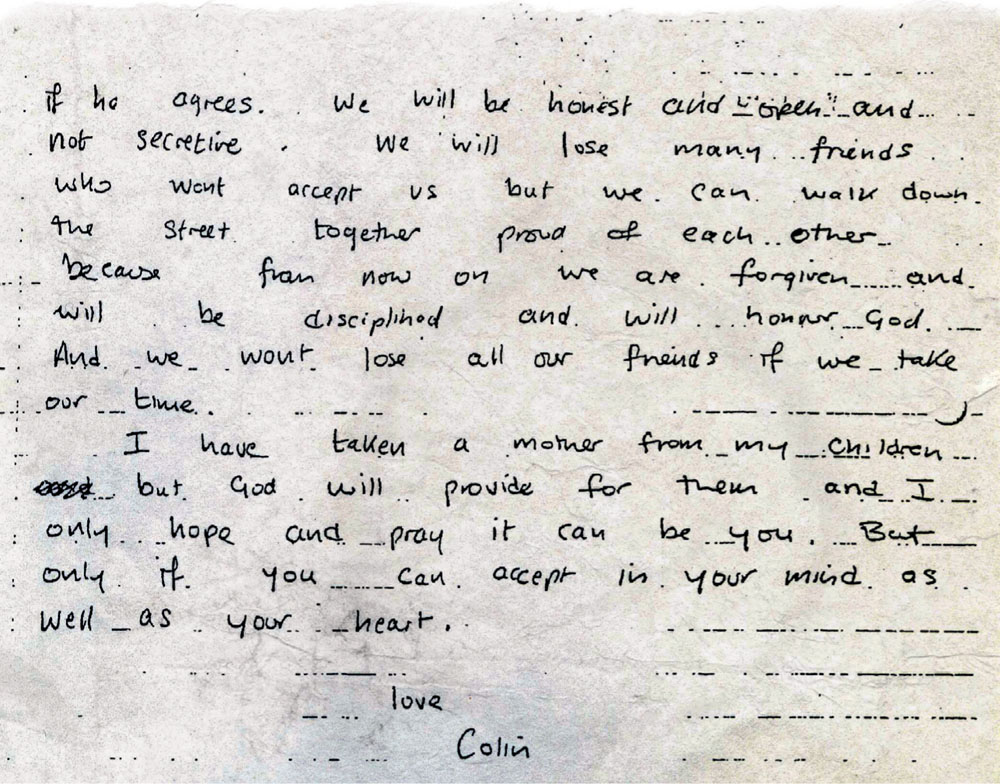 if he agrees. We will be honest and "open" and
not secretive. We will lose many friends
who wont accept us but we can walk down
the street together proud of each other
because from now on we are forgiven and
will be disciplined and will honour God.
And we wont lose all our friends if we take
our time.
I have taken a mother from my children
but God will provide for them and I
only hope and pray it can be you. But
only if you can accept in your mind as
well as your heart.
love
Colin